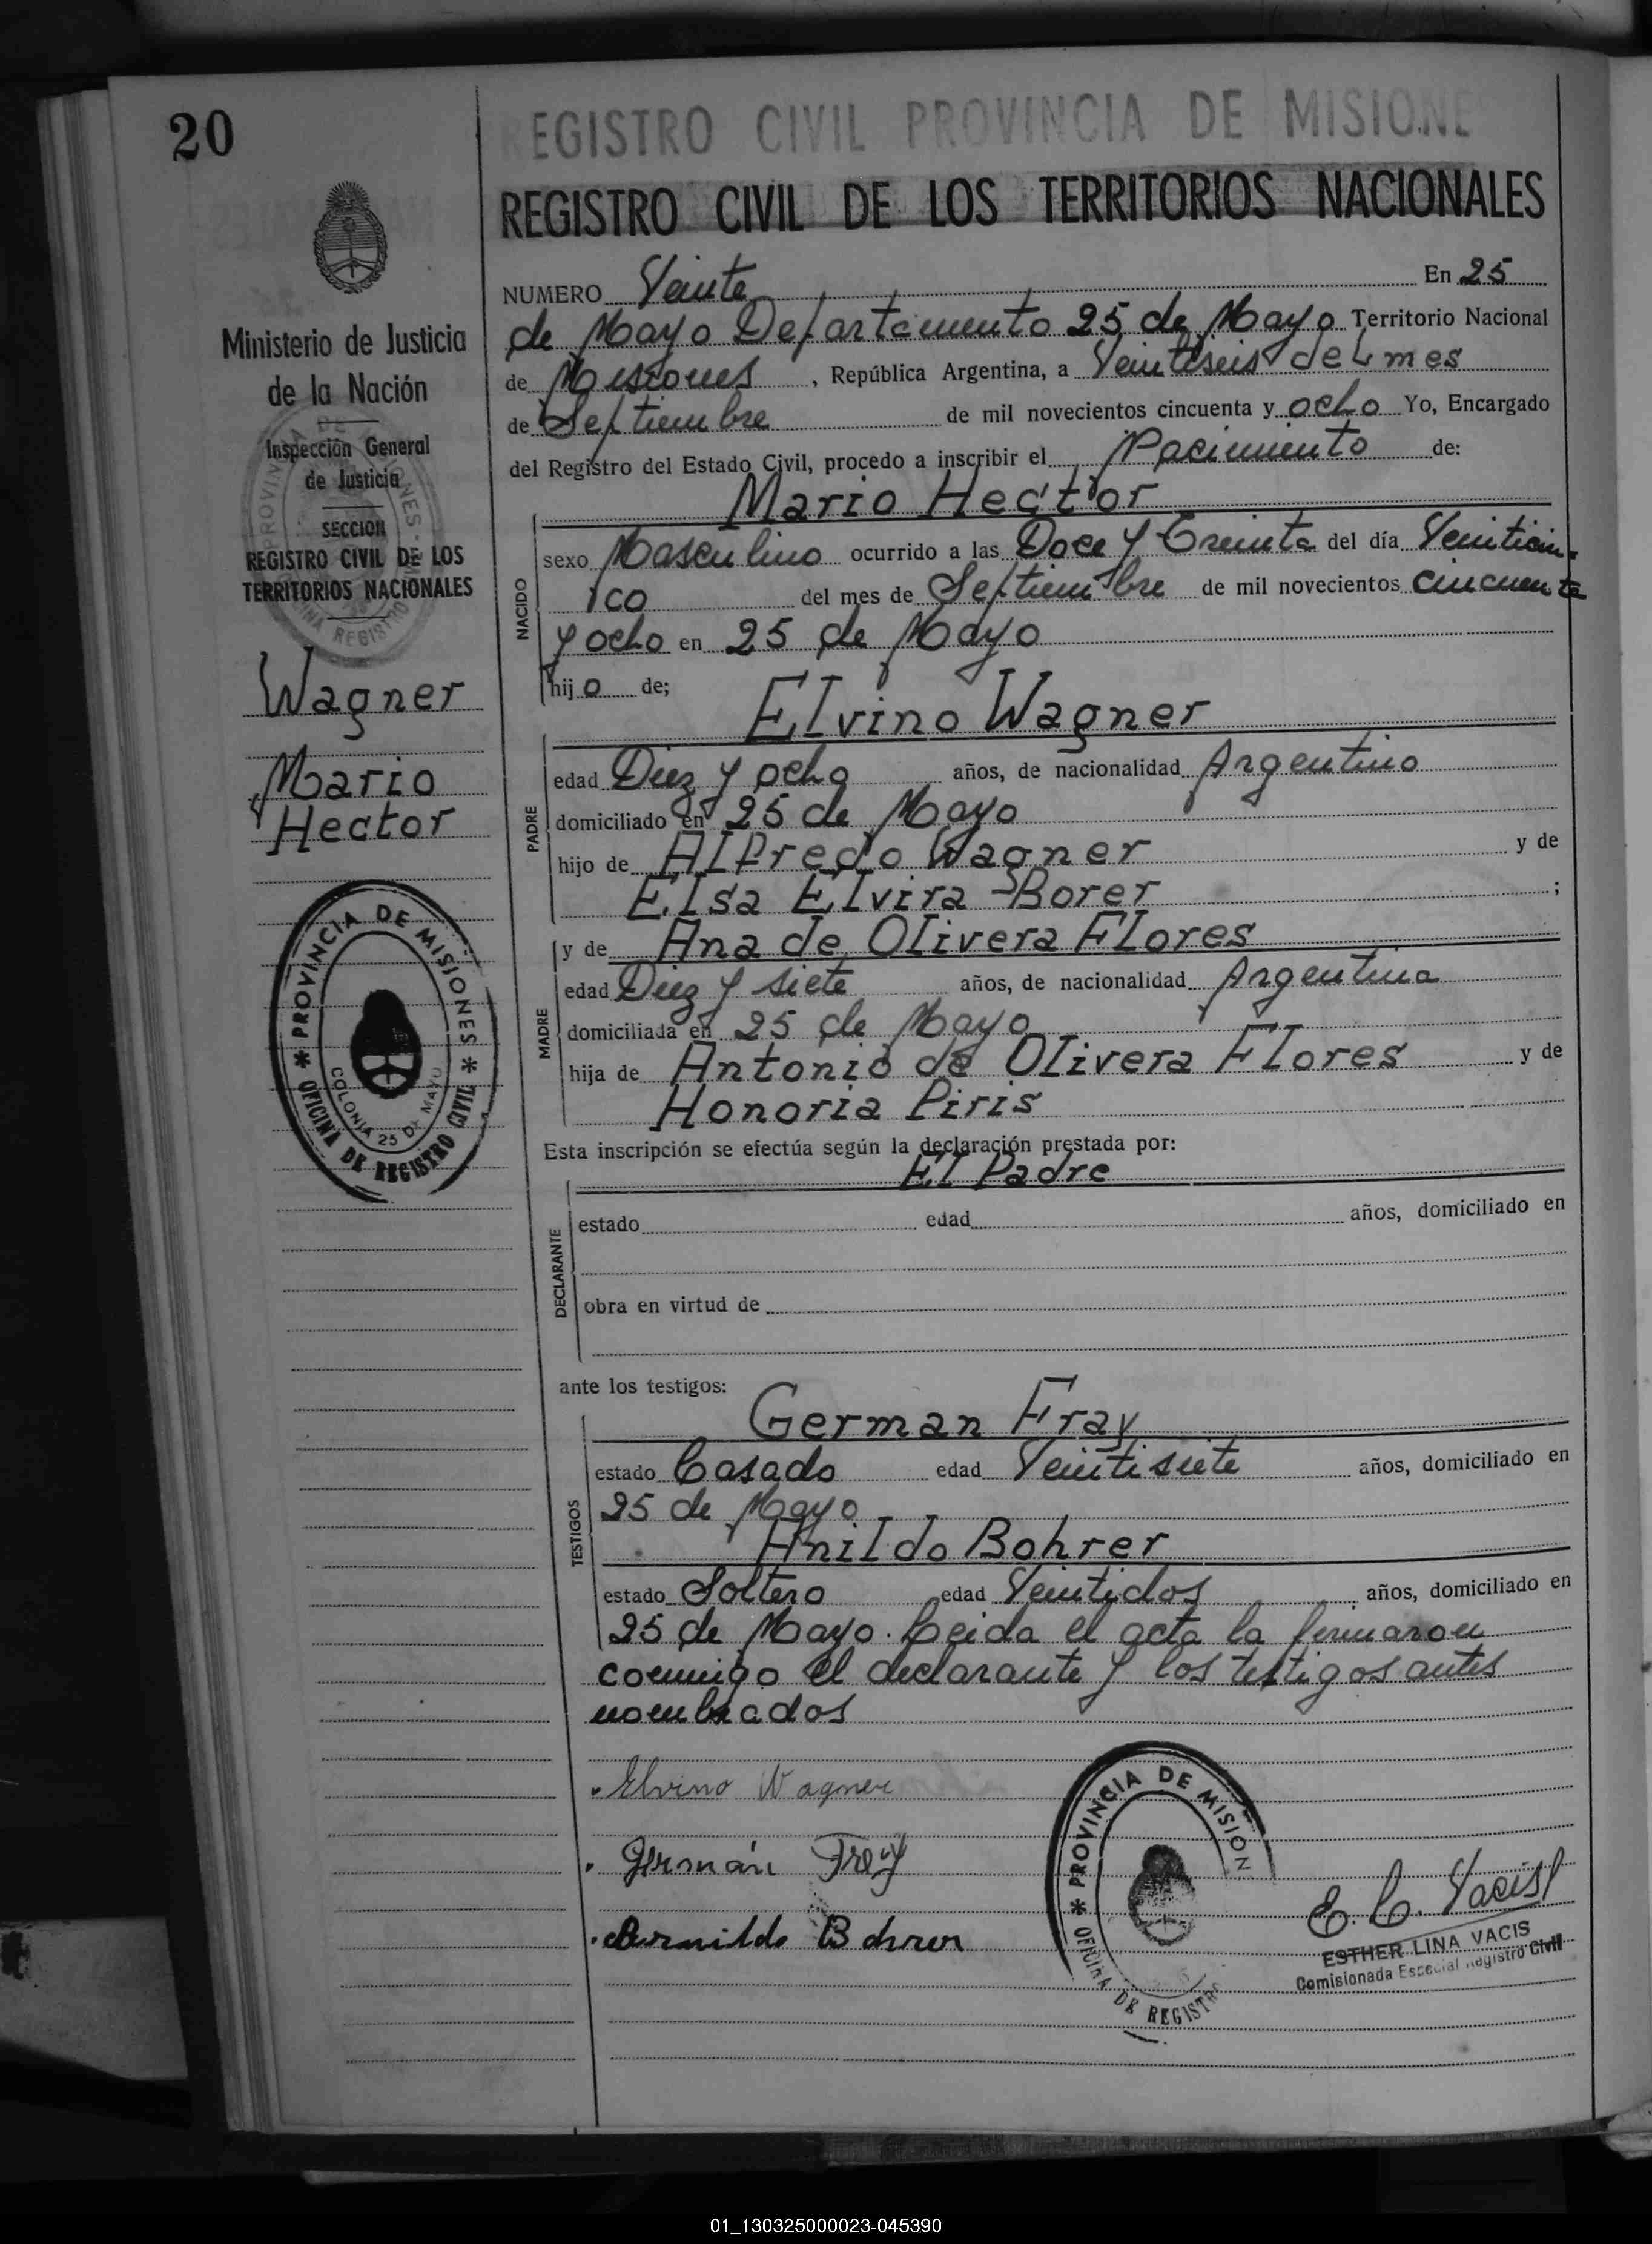 20
REGISTRO CIVIL PROVINCIA DE MISIONE
REGISTRO CIVIL DE LOS TERRITORIOS NACIONALES
Ministerio de Justicia
de la Nación
Inspección General
de Justicia
SECCION
REGISTRO CIVIL DE LOS
TERRITORIOS NACIONALES
Wagner
Mario
Hector
PROVINCIA DE MISIONES
COLONIA 25 DE MAYO
OFICINA DE REGISTRO CIVIL
NUMERO Veinte En 25
de Mayo Departamento 25 de Mayo Territorio Nacional
de Misiones, República Argentina, a Veintiseis del mes
de Septiembre de mil novecientos cincuenta y ocho Yo, Encargado
del Registro del Estado Civil, procedo a inscribir el Nacimiento de:
Mario Hector
NACIDO
sexo Masculino ocurrido a las Doce y Treinta del día Veinticin-
co del mes de Septiembre de mil novecientos cincuenta
y ocho en 25 de Mayo
hijo de;
Elvino Wagner
PADRE
edad Diez y ocho años, de nacionalidad Argentino
domiciliado en 25 de Mayo
hijo de Alfredo Wagner y de
Elsa Elvira Borer ;
MADRE
y de Ana de Olivera Flores
edad Diez y siete años, de nacionalidad Argentina
domiciliada en 25 de Mayo
hija de Antonio de Olivera Flores y de
Honoria Piris
Esta inscripción se efectúa según la declaración prestada por:
El Padre
DECLARANTE
estado edad años, domiciliado en
obra en virtud de
ante los testigos:
German Fray
TESTIGOS
estado Casado edad Veintisiete años, domiciliado en
25 de Mayo
Anildo Bohrer
estado Soltero edad Veintidos años, domiciliado en
25 de Mayo. Leida el acta la firmaron
conmigo el declarante y los testigos antes
nombrados
Elvino Wagner
Germán Frey
Bohrer
PROVINCIA DE MISION
OFICINA DE REGISTR
E. L. Vacis
ESTHER LINA VACIS
Comisionada Especial Registro Civil
01_130325000023-045390